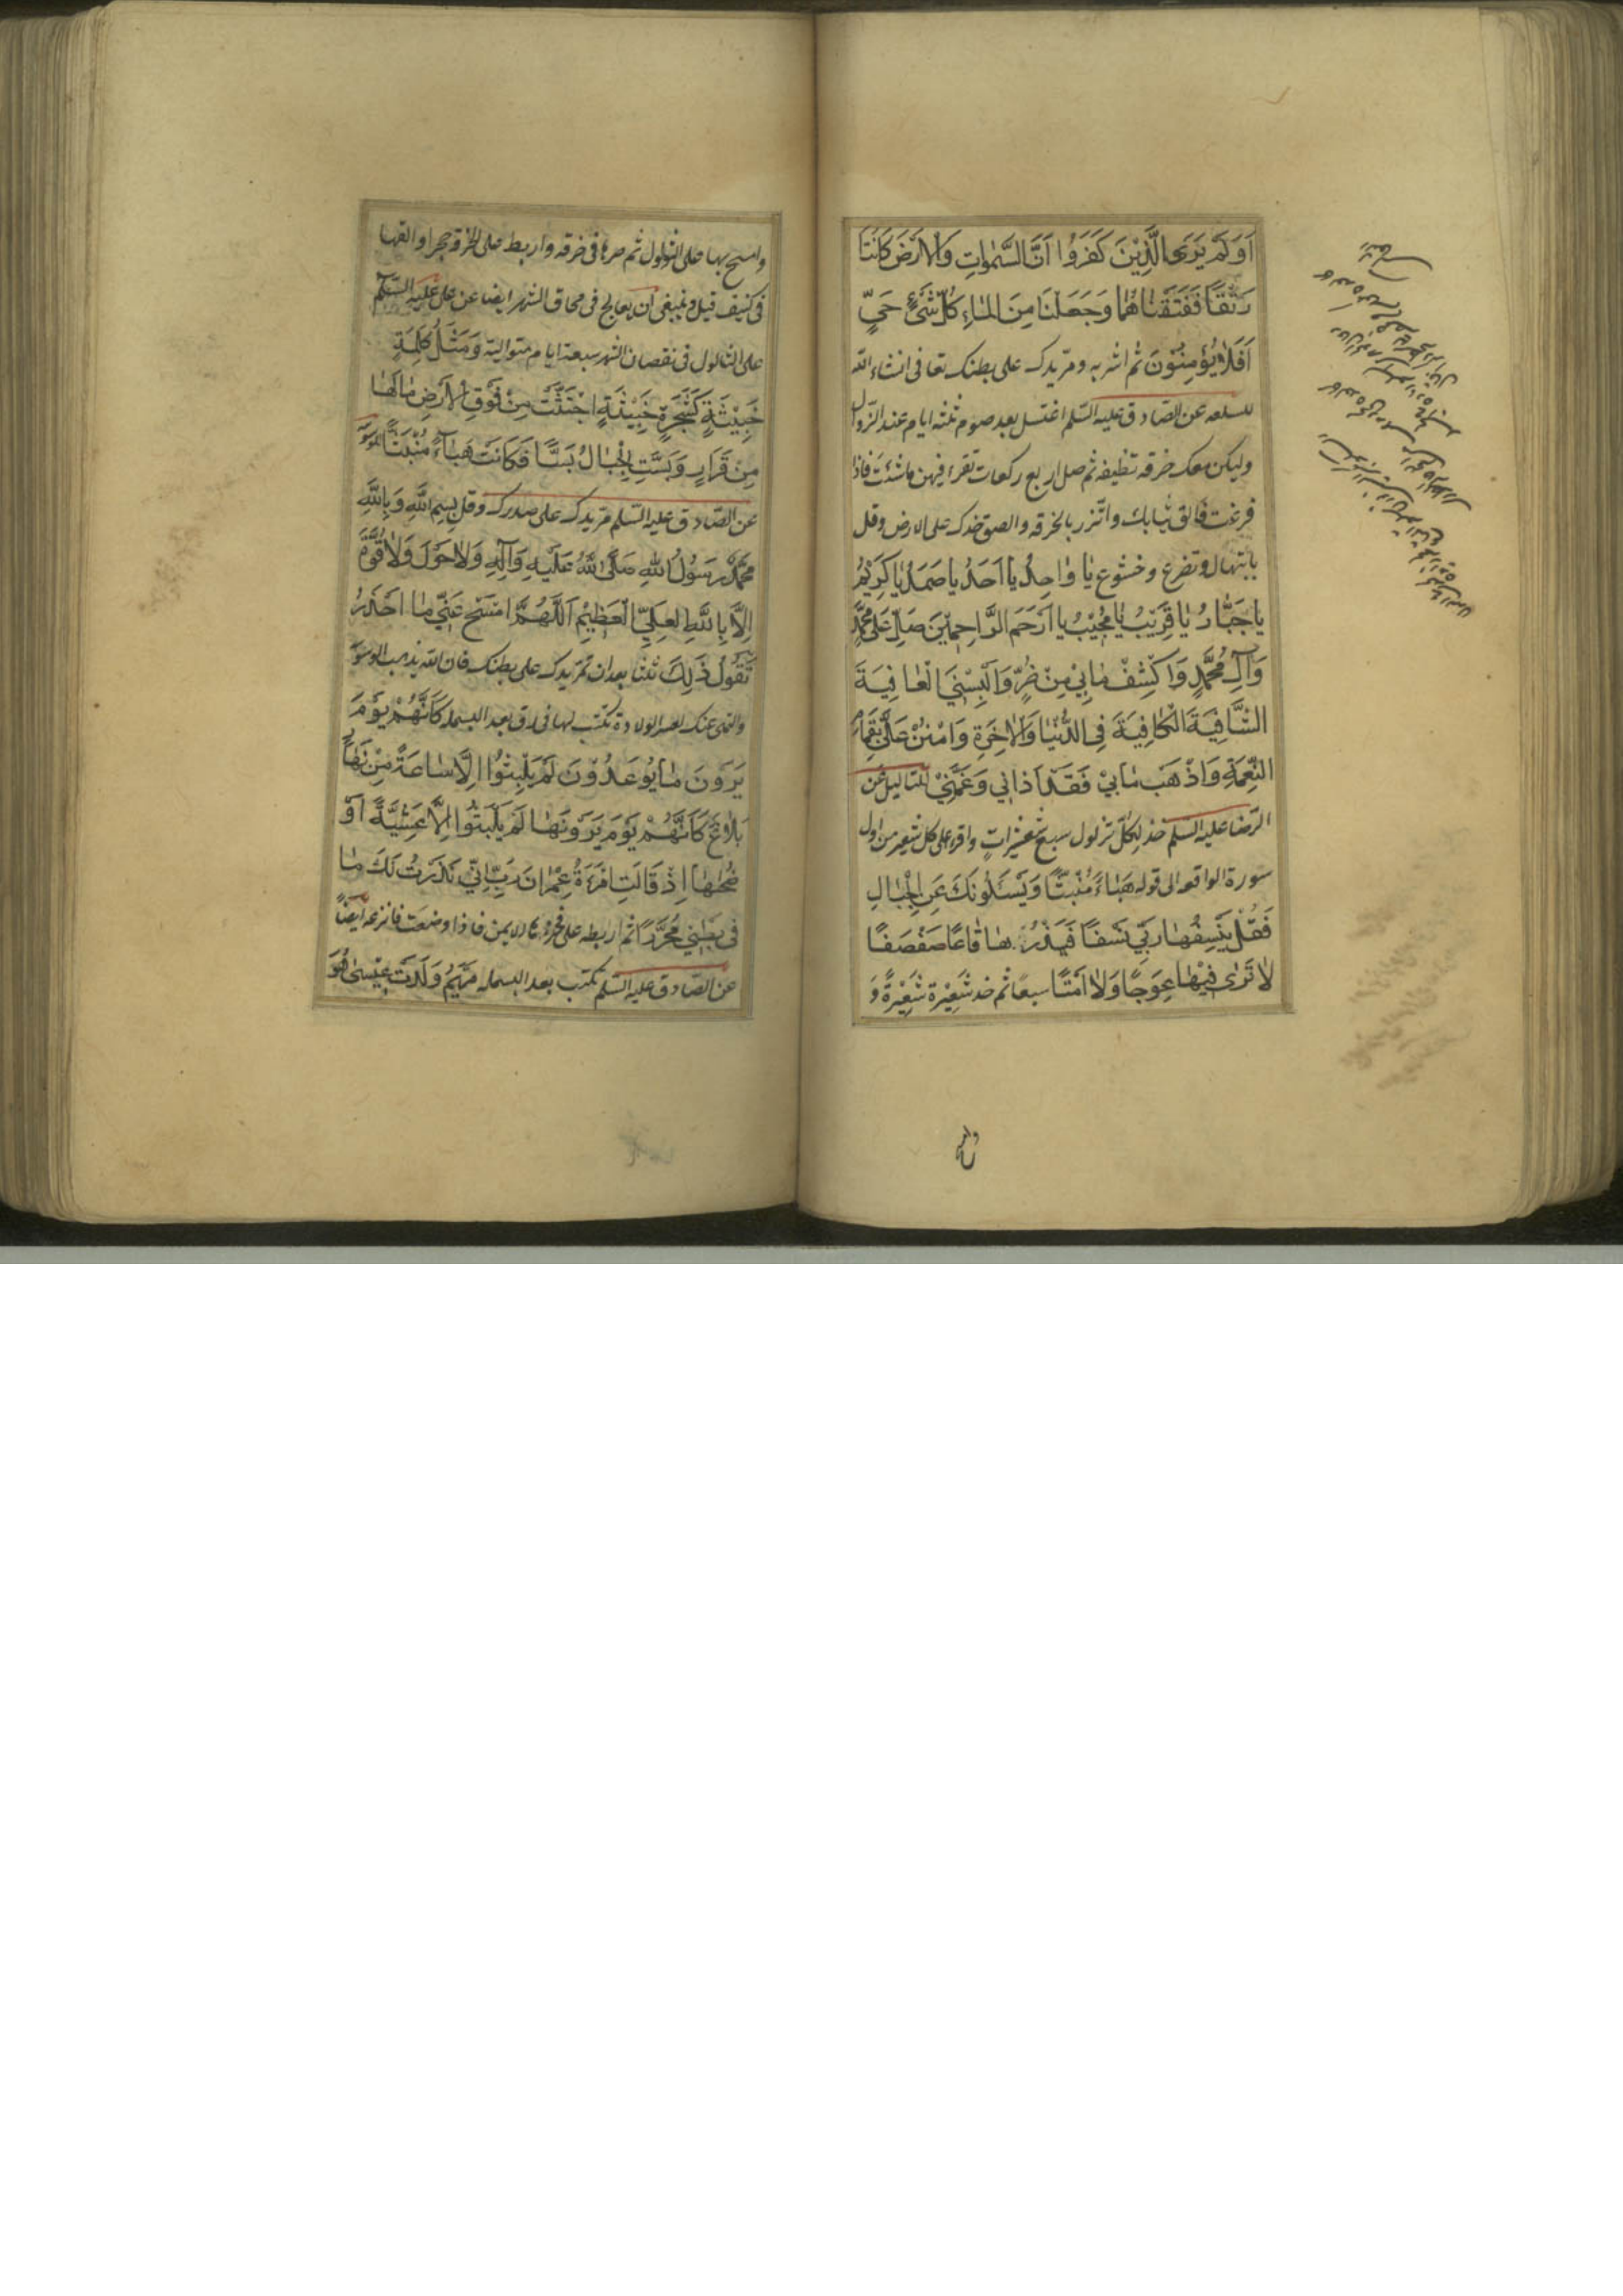 اَوَلَمْ يَرَى الَّذِيْنَ كَفَرُوا اَنَّ السَّمٰوَاتِ وَالْاَرْضَ كَانَتَا
رَتْقًا فَفَتَقْنَاهُمَا وَجَعَلْنَا مِنَ الْمَاءِ كُلَّ شَيْءٍ حَيٍّ
اَفَلَا يُؤْمِنُوْنَ ثم اشربه ومرّ يدك على بطنك تعافى انشاء الله
للسلعه عن الصّادق عليه السّلم اغتسل بعد صوم ثلثه ايام عند الزّوال
وليكن معك خرقه نظيفه ثم صل اربع ركعات تقرء فيهن ما شئت فاذا
فرغت فالق ثيابك واتّزر بالخرقه والصق خدك على الارض وقل
بابتهال وتضرع وخشوع يَا وَاحِدُ يَا اَحَدُ يَا صَمَدُ يَا كَرِيْمُ
يَا جَبَّارُ يَا قَرِيْبُ يَا مُجِيْبُ يَا اَرْحَمَ الرَّاحِمِيْنَ صَلِّ عَلَى مُحَمَّدٍ
وَآلِ مُحَمَّدٍ وَاكْشِفْ مَا بِيْ مِنْ ضُرٍّ وَاَلْبِسْنِيَ الْعَافِيَةَ
الشَّافِيَةَ الْكَافِيَةَ فِي الدُّنْيَا وَالْاٰخِرَةِ وَامْنُنْ عَلَيَّ بِتَمَامِ
النِّعْمَةِ وَاَذْهِبْ مَا بِيْ فَقَدْ اٰذَانِي وَغَمَّنِيْ للثاليل عن
الرّضا عليه السّلم خذ لكلّ ثولول سبع شعيراتٍ واقرء على كل شعير من اول
سورة الواقعه الى قوله هَبَاءً مُنْبَثًّا وَيَسْئَلُوْنَكَ عَنِ الْجِبَالِ
فَقُلْ يَنْسِفُهَا رَبِّيْ نَسْفًا فَيَذَرُهَا قَاعًا صَفْصَفًا
لَا تَرٰى فِيْهَا عِوَجًا وَلَا اَمْتًا سبعًا ثم خذ شَعِيْرة شَعِيْرةً وَ
وامسح بها على الثولول ثم صرها في خرقه واربط على الخرقه حجرا والقها
في كنيف قيل وينبغي ان يعالج في محاق الشهر ايضا عن علي عليه السّلم
على الثالول في نقصان الشهر سبعة ايام متوالية وَمَثَلُ كَلِمَةٍ
خَبِيْثَةٍ كَشَجَرَةٍ خَبِيْثَةٍ اجْتُثَّتْ مِنْ فَوْقِ الْاَرْضِ مَا لَهَا
مِنْ قَرَارٍ وَبُسَّتِ الْجِبَالُ بَسًّا فَكَانَتْ هَبَاءً مُنْبَثًّا
عن الصّادق عليه السّلم مرّ يدك على صدرك وقل بِسْمِ اللهِ وَبِاللهِ
مُحَمَّدٌ رَسُوْلُ اللهِ صَلَّى اللهُ عَلَيْهِ وَآلِهِ وَلَا حَوْلَ وَلَا قُوَّةَ
اِلَّا بِاللهِ الْعَلِيِّ الْعَظِيْمِ اَللّٰهُمَّ امْسَحْ عَنِّيْ مَا اَحْذَرُ
تَقُوْلُ ذَلِكَ ثلثا بعد ان تمرّ يدك على بطنك فان الله يذهب
عنك لعسر الولادة تكتب لها في رق بعد البسمله كَاَنَّهُمْ يَوْمَ
يَرَوْنَ مَا يُوْعَدُوْنَ لَمْ يَلْبَثُوْا اِلَّا سَاعَةً مِنْ نَهَارٍ
بَلَاغٌ كَاَنَّهُمْ يَوْمَ يَرَوْنَهَا لَمْ يَلْبَثُوا اِلَّا عَشِيَّةً اَوْ
ضُحٰهَا اِذْ قَالَتِ امْرَءَةُ عِمْرَانَ رَبِّ اِنِّيْ نَذَرْتُ لَكَ مَا
فِي بَطْنِيْ مُحَرَّرًا ثم اربطه على فخذها الايمن فاذا وضعت فانزعه ايضًا
عن الصّادق عليه السّلم تكتب بعد البسمله مَرْيَمُ وَلَدَتْ عِيْسٰى هُوَ